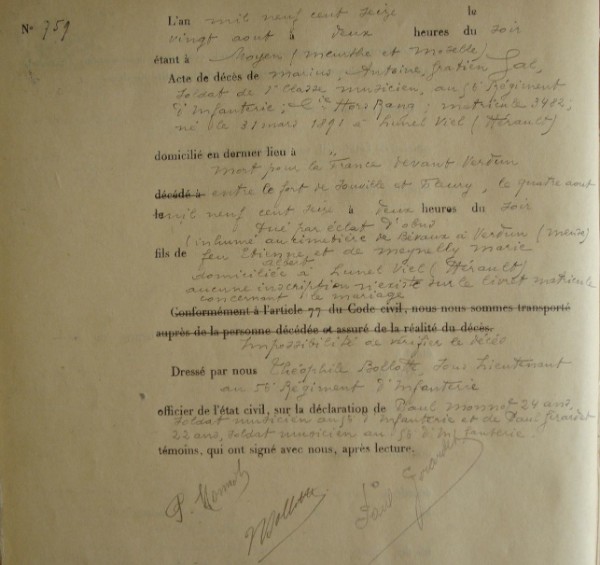 N° 759
L'an mil neuf cent seize le
vingt aout à deux heures du soir
étant à Moyen (Meurthe et Moselle)
Acte de décès de Marius, Antoine, Gratien Gal,
Soldat de 1e Classe musicien, au 56 Régiment
d'Infanterie; Cie Hors Rang; matricule 3482;
né le 31 mars 1891 à Lunel Viel (Hérault)
domicilié en dernier lieu à "
Mort pour la France devant Verdun
décédé à entre le fort de Souville et Fleury, le quatre aout
le mil neuf cent seize à deux heures du soir
Tué par éclat d'obus
(inhumé au cimetière de Bévaux à Verdun (Meuse)
fils de feu Etienne Albert et de Meynelly Marie
domiciliée à Lunel Viel (Hérault)
aucune inscription n'existe sur le livret matricule
concernant le mariage
Conformément à l'article 77 du Code civil, nous nous sommes transporté
auprès de la personne décédée et assuré de la réalité du décès.
Impossibilité de vérifier le décès
Dressé par nous Théophile Bollotte, Sous Lieutenant
au 56 Régiment d'Infanterie
officier de l'état civil, sur la déclaration de Paul Monnot 24 ans,
Soldat musicien au 56 d'Infanterie et de Paul Girardet
22 ans, soldat musicien au 56 d'Infanterie.
témoins, qui ont signé avec nous, après lecture.
P. Monnot
Bollotte
Paul Girardet